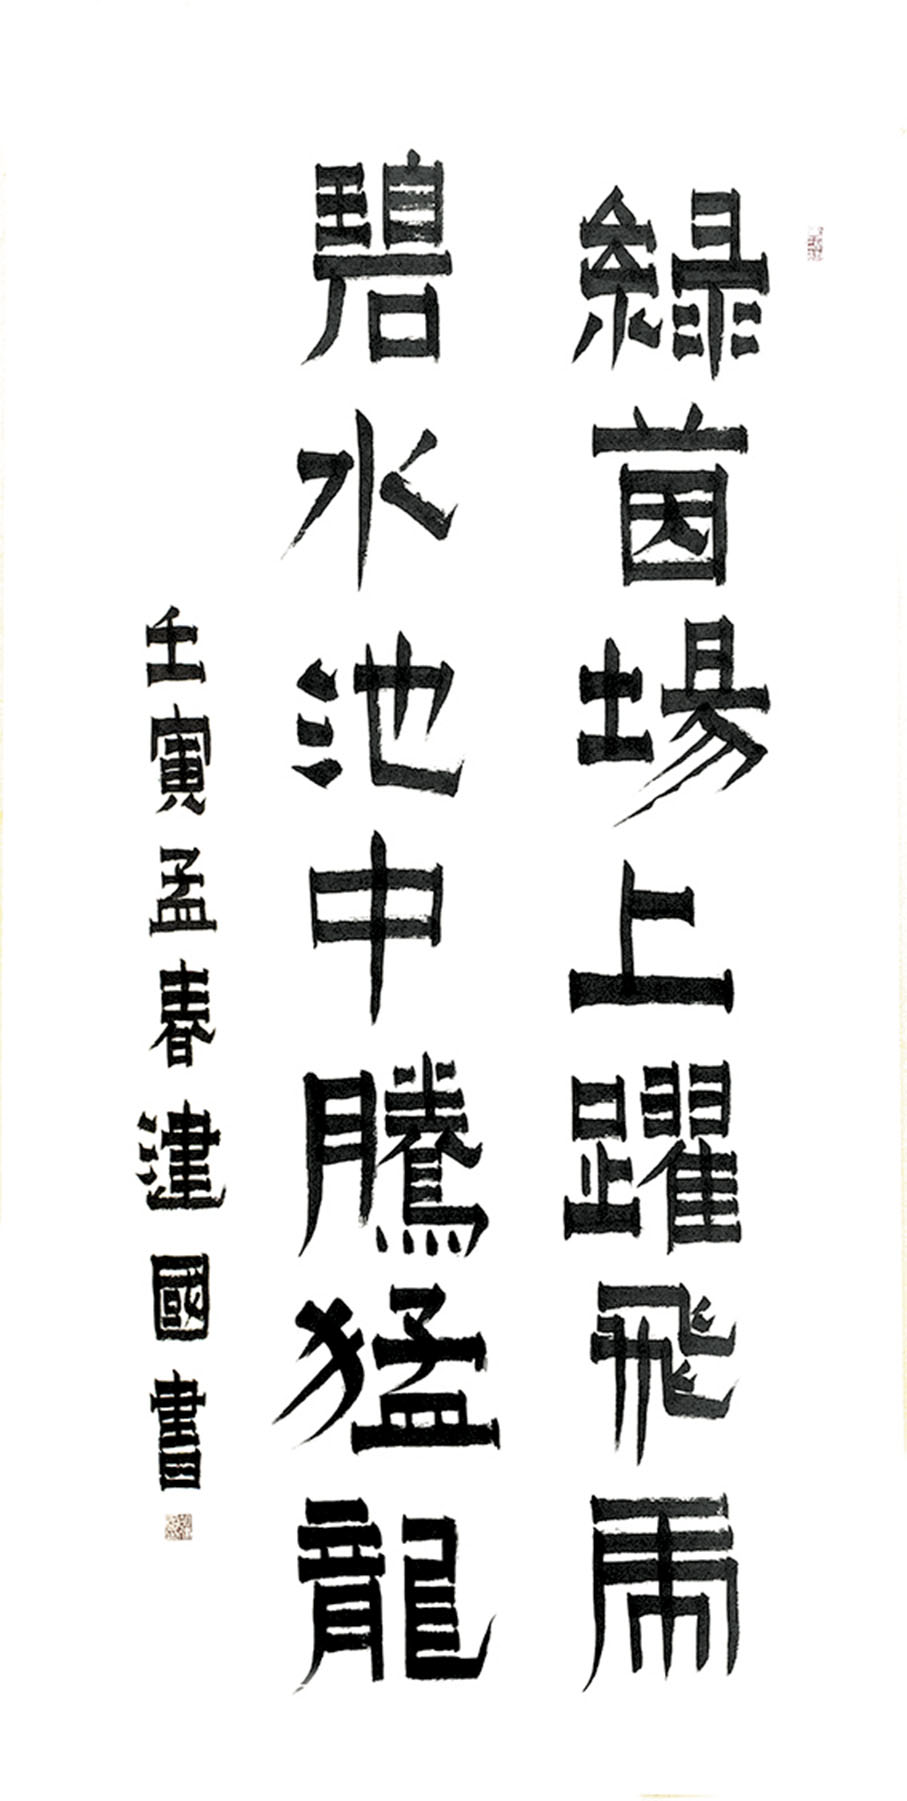 綠茵場上躍飛虎
碧水池中騰猛龍
壬寅孟春建國書